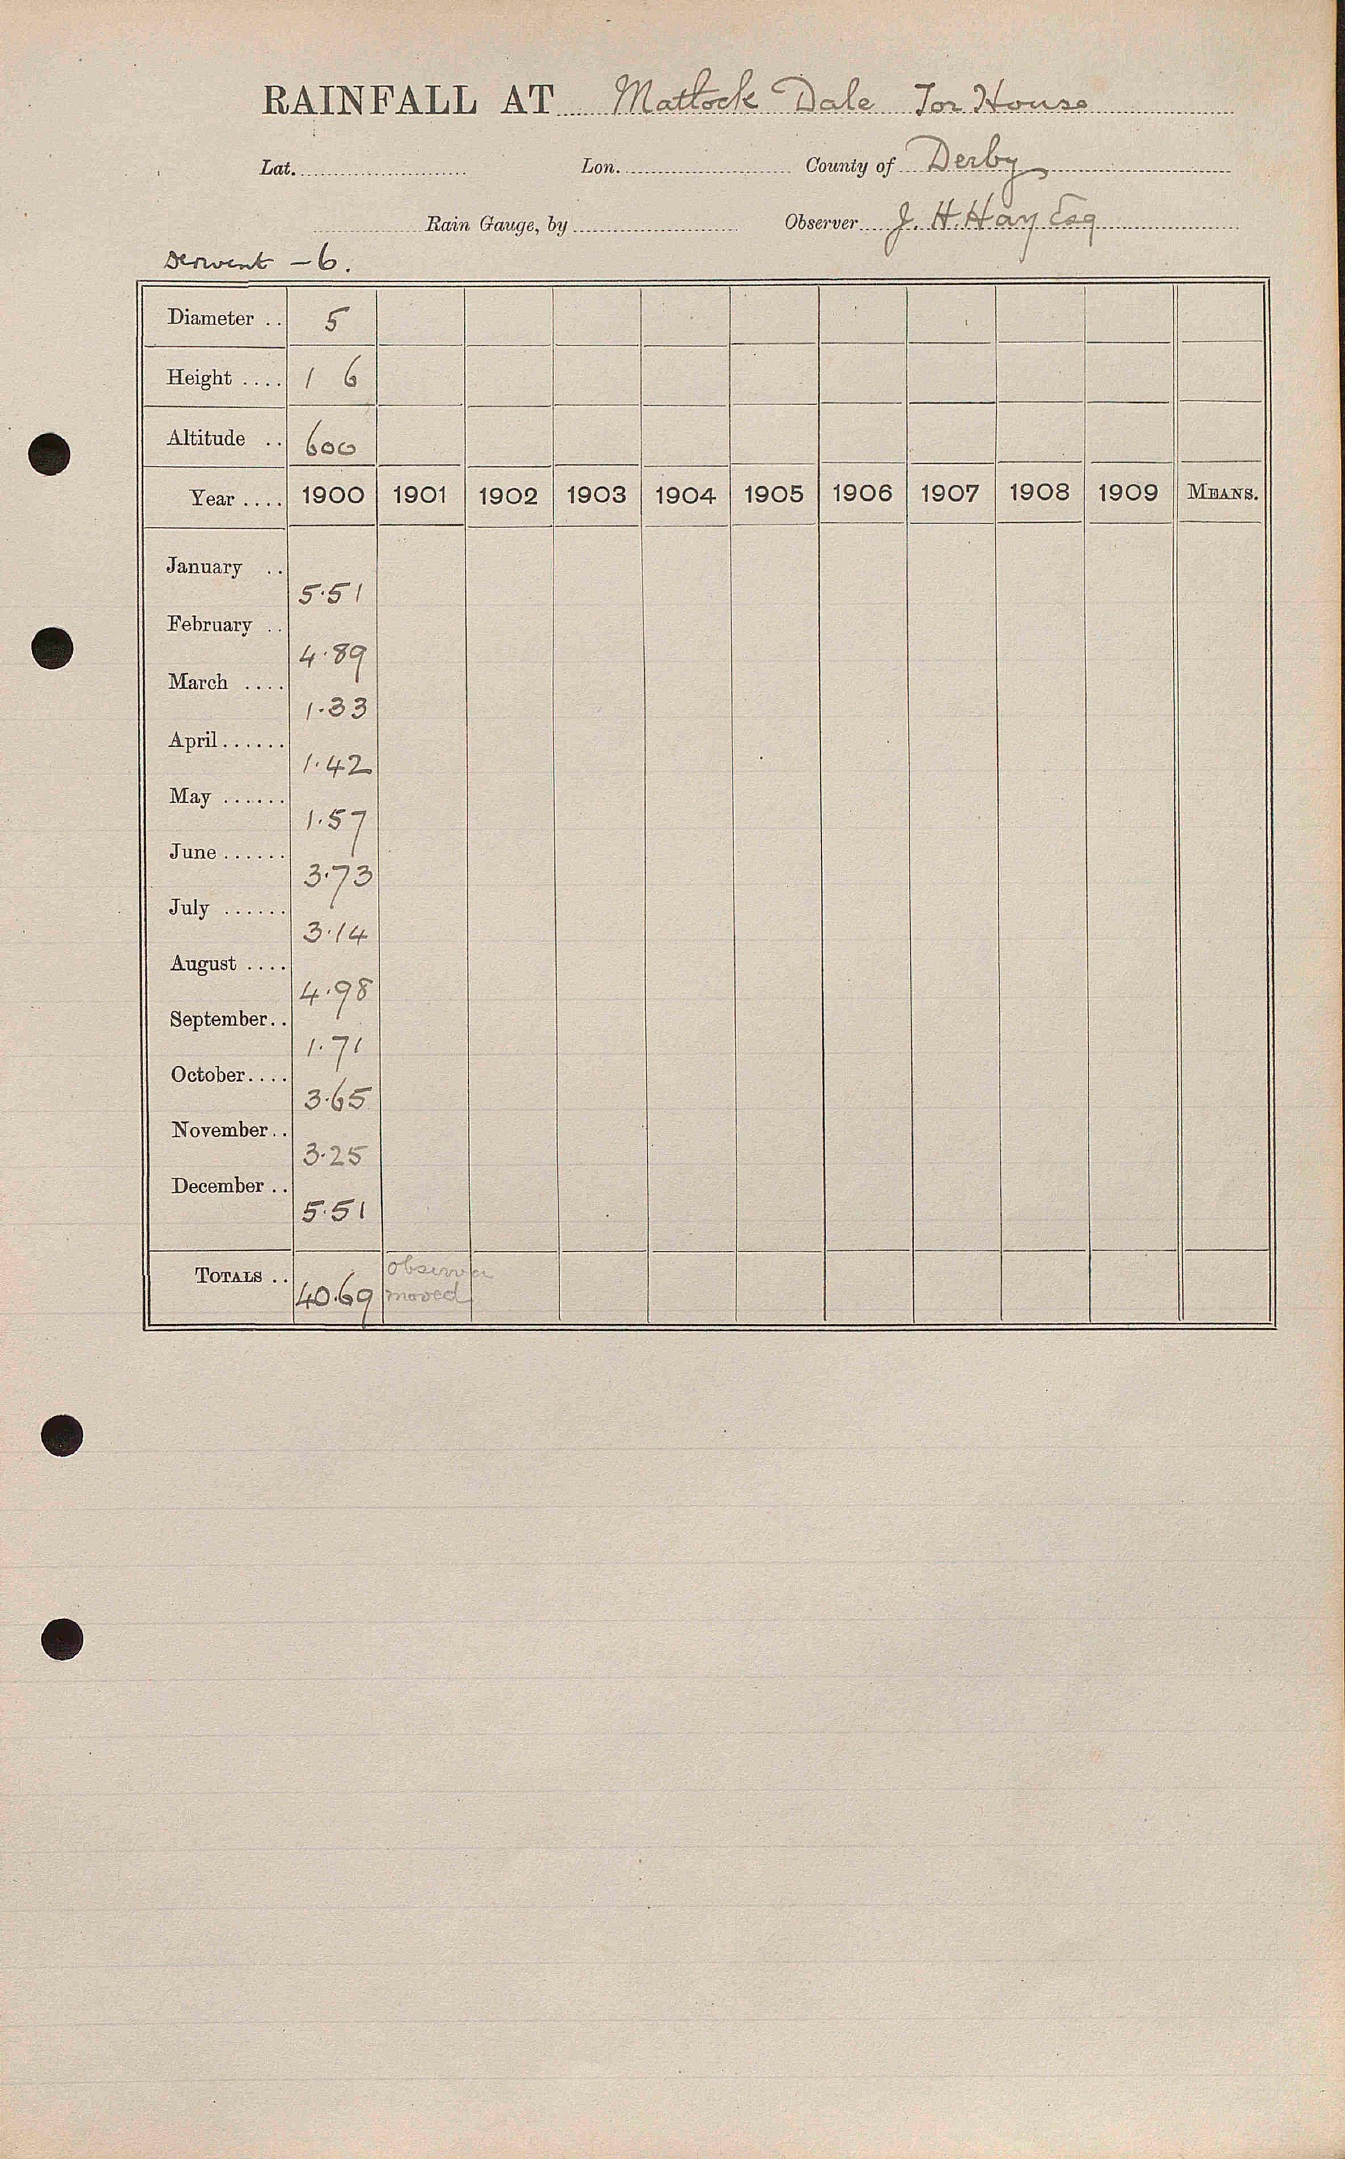 RAINFALL AT Matlock Dale Tor House
Lat. Lon. County of Derby
Rain Gauge, by Observer J. H. Hay Esq
Derwent - 6.
Diameter .. 5
Height .... 1 6
Altitude .. 600
Year .... 1900 1901 1902 1903 1904 1905 1906 1907 1908 1909 MEANS.
January .. 5.51
February .. 4.89
March .... 1.33
April ...... 1.42
May ...... 1.57
June ...... 3.73
July ...... 3.14
August .... 4.98
September .. 1.71
October .... 3.65
November .. 3.25
December .. 5.51
TOTALS .. 40.69 observer moved